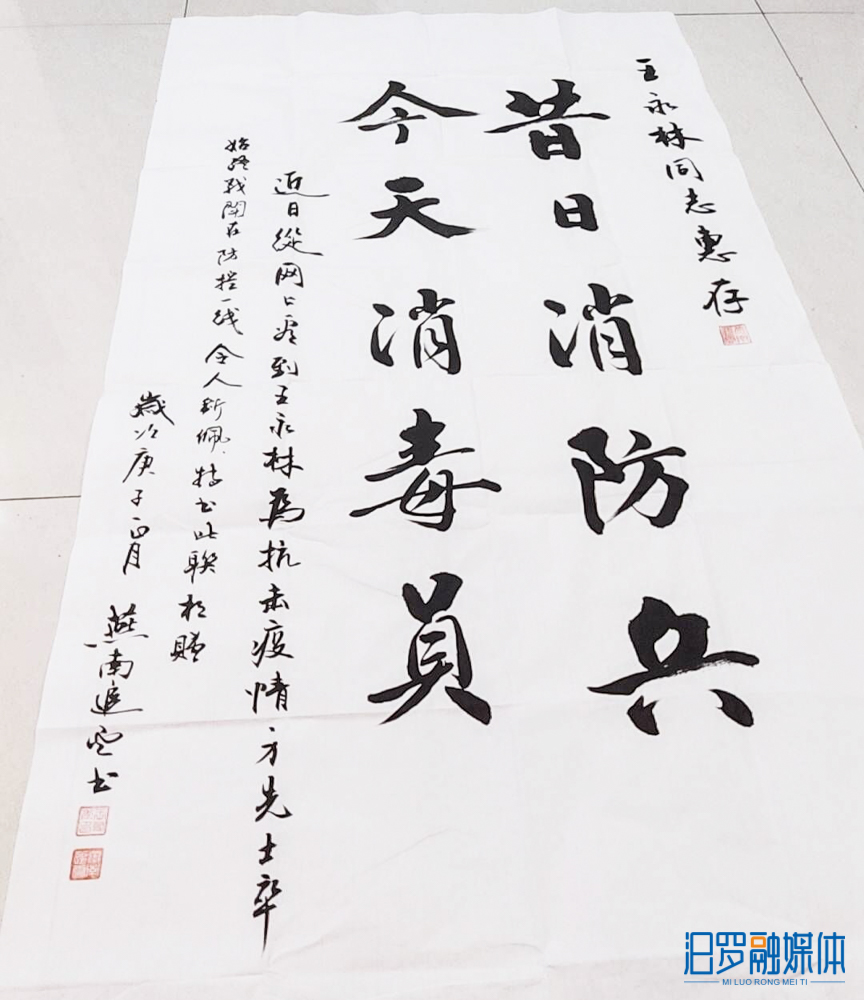 王永林同志惠存
昔日消防兵
今天消毒員
近日從网上看到王永林為抗击疫情身先士卒
始终战鬥在防控一线令人钦佩.特书此联相赠
歲次庚子正月
燕南追雲书
汨罗融媒体
MI LUO RONG MEI TI